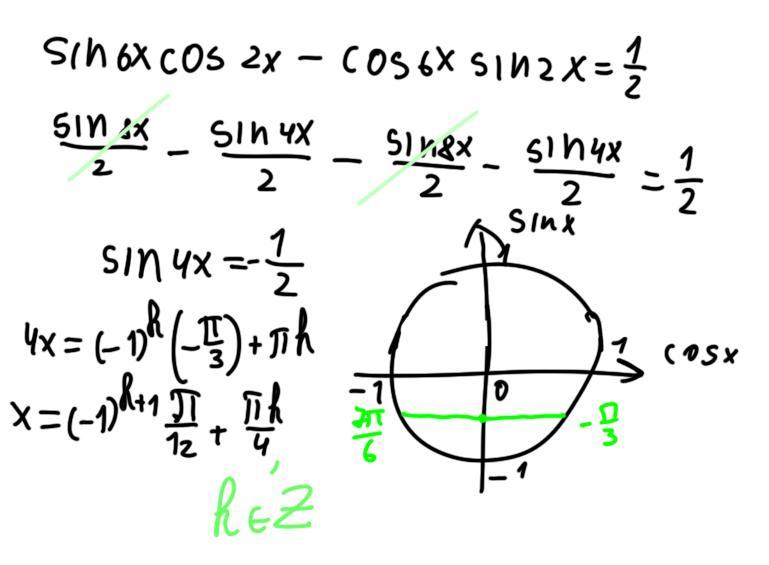 sin 6x cos 2x − cos 6x sin 2x = 1/2
sin 8x/2 − sin 4x/2 − sin 8x/2 − sin 4x/2 = 1/2
sin 4x = -1/2
4x = (-1)^n (-π/3) + πn
x = (-1)^{n+1} π/12 + πn/4,
n ∈ Z
sin x
1
1
cos x
-1
0
7π/6
-π/3
-1